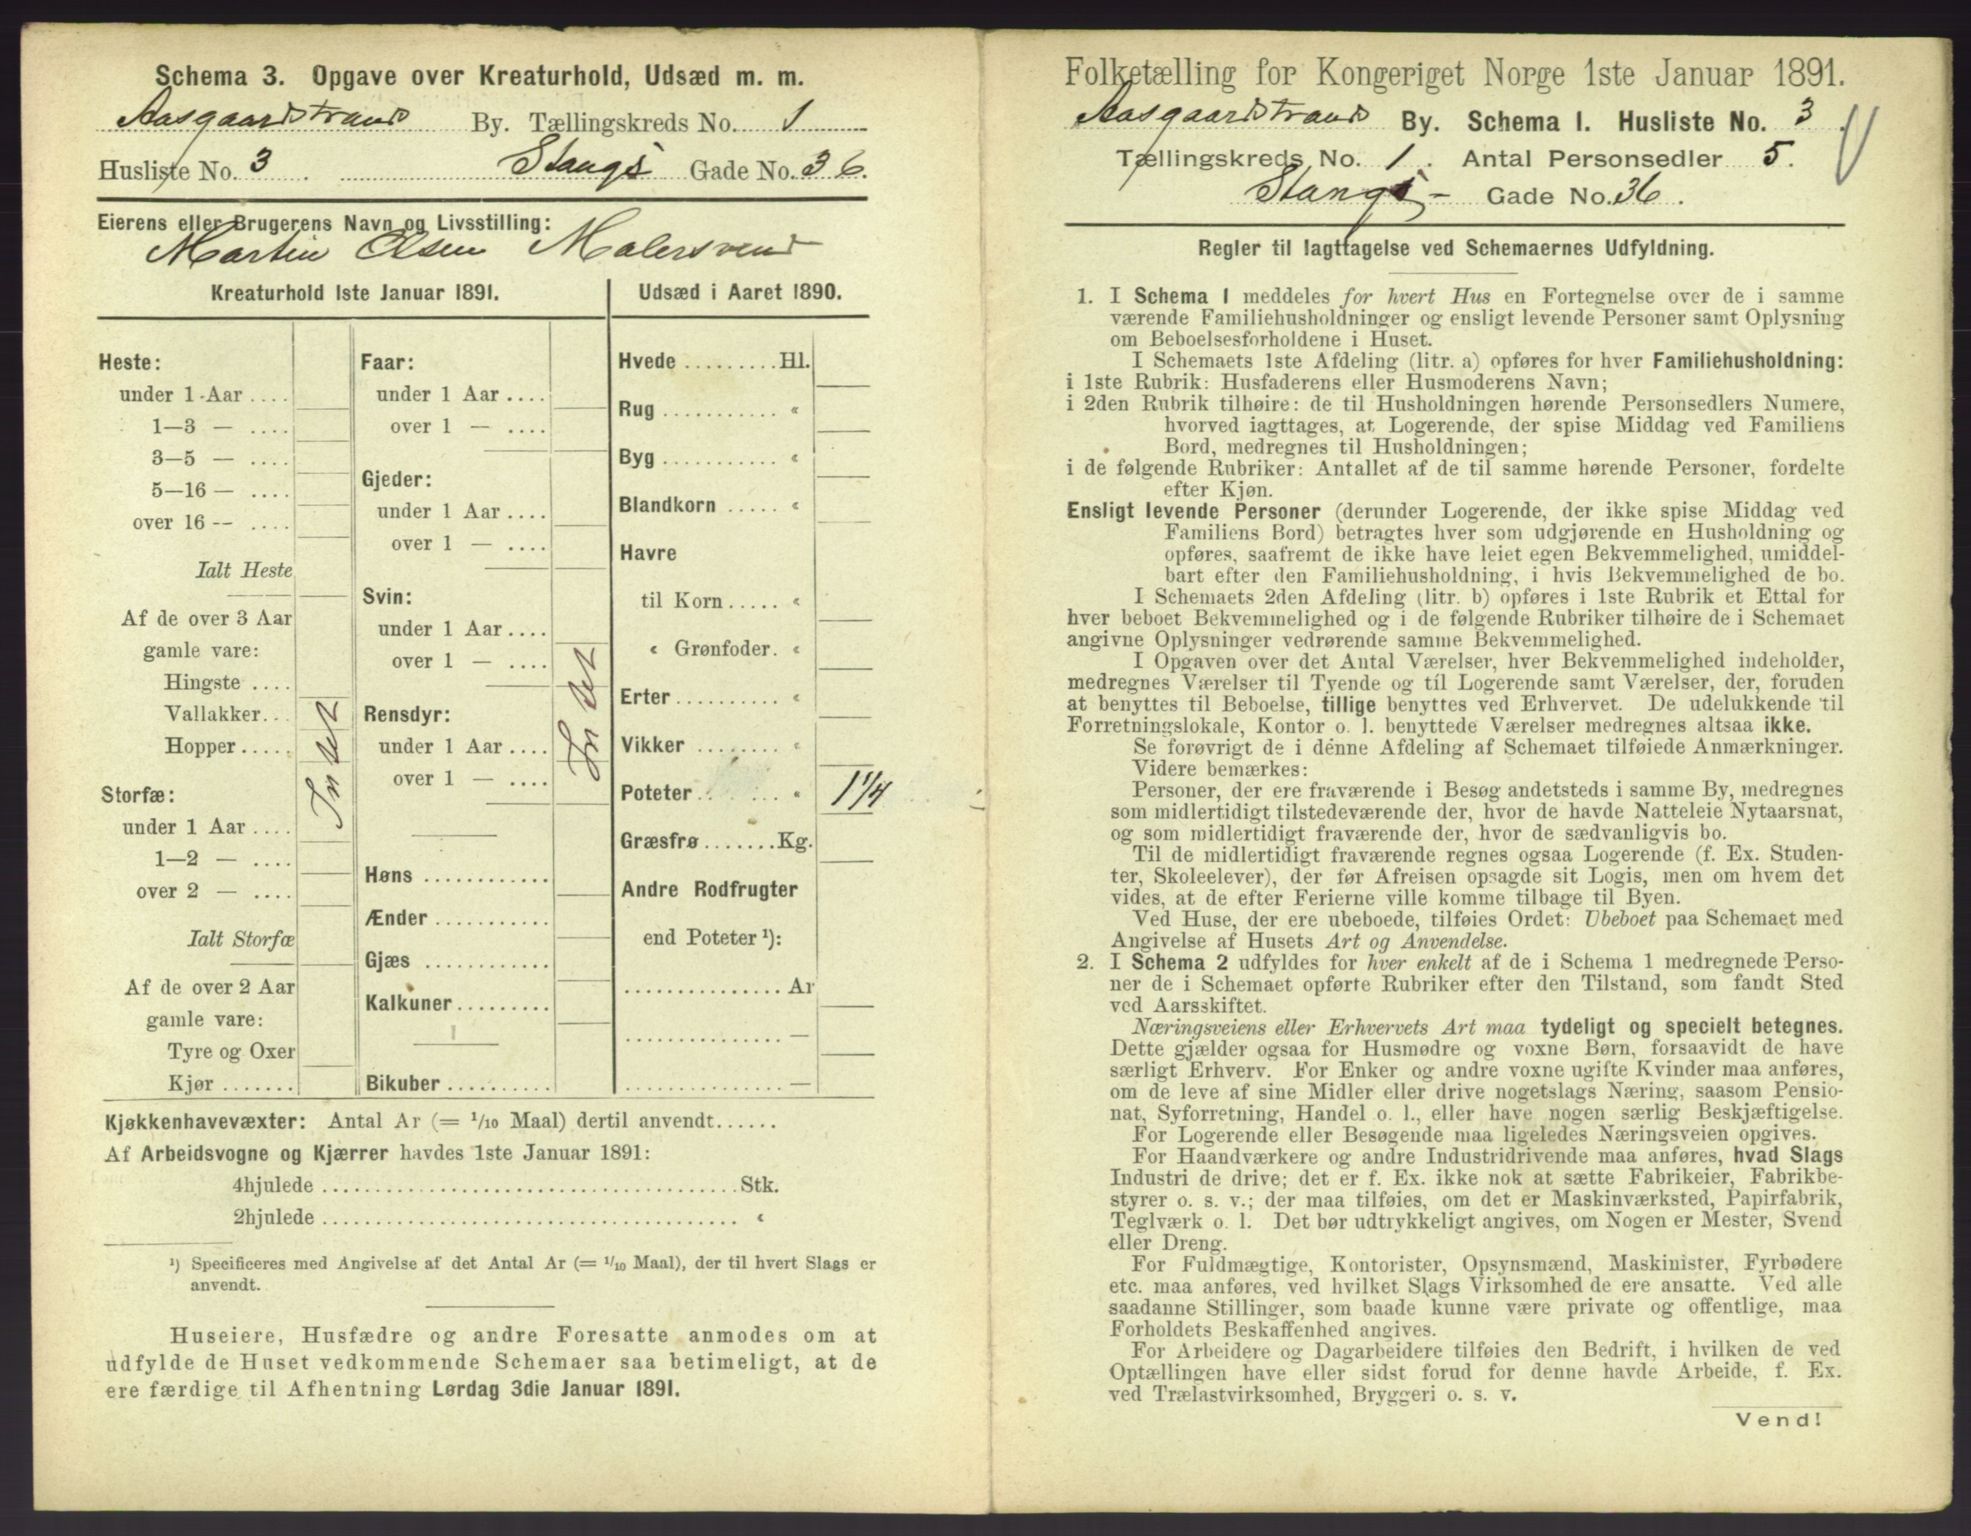 Schema 3. Opgave over Kreaturhold, Udsæd m. m.
Aasgaardstrand By. Tællingskreds No. 1
Husliste No. 3 . Stangs Gade No. 36.
Eierens eller Brugerens Navn og Livsstilling:
Martin Olsen Malersvend
Kreaturhold 1ste Januar 1891.
Heste:
under 1 Aar ....
1—3 — ....
3—5 — ....
5—16 — ....
over 16 -- ....
Ialt Heste
Af de over 3 Aar
gamle vare:
Hingste ....
Vallakker...
Hopper.....
Storfæ:
under 1 Aar ....
1—2 — ....
over 2 — ....
Ialt Storfæ
Af de over 2 Aar
gamle vare:
Tyre og Oxer
Kjør .......
Intet
Faar:
under 1 Aar ....
over 1 — ....
Gjeder:
under 1 Aar ....
over 1 — ....
Svin:
under 1 Aar....
over 1 — ....
Rensdyr:
under 1 Aar ....
over 1 — ....
Høns ............
Ænder...........
Gjæs ............
Kalkuner.........
Bikuber..........
Intet
Udsæd i Aaret 1890.
Hvede .........Hl.
Rug ........... “
Byg ........... “
Blandkorn ..... “
Havre
til Korn..... “
“ Grønfoder. “
Erter.......... “
Vikker ........ “
Poteter ....... “ 1 1/4
Græsfrø.......Kg.
Andre Rodfrugter
end Poteter ¹):
...............Ar
...............—
...............—
Kjøkkenhavevæxter: Antal Ar (= 1/10 Maal) dertil anvendt......
Af Arbeidsvogne og Kjærrer havdes 1ste Januar 1891:
4hjulede .......................................Stk.
2hjulede ....................................... “
¹) Specificeres med Angivelse af det Antal Ar (= 1/10 Maal), der til hvert Slags er
anvendt.
Huseiere, Husfædre og andre Foresatte anmodes om at
udfylde de Huset vedkommende Schemaer saa betimeligt, at de
ere færdige til Afhentning Lørdag 3die Januar 1891.
Folketælling for Kongeriget Norge 1ste Januar 1891.
Aasgaardstrand By. Schema I. Husliste No. 3 .
Tællingskreds No. 1 . Antal Personsedler 5.
Stangs- Gade No. 36 .
Regler til Iagttagelse ved Schemaernes Udfyldning.
1. I Schema 1 meddeles for hvert Hus en Fortegnelse over de i samme
værende Familiehusholdninger og ensligt levende Personer samt Oplysning
om Beboelsesforholdene i Huset.
I Schemaets 1ste Afdeling (litr. a) opføres for hver Familiehusholdning:
i 1ste Rubrik: Husfaderens eller Husmoderens Navn;
i 2den Rubrik tilhøire: de til Husholdningen hørende Personsedlers Numere,
hvorved iagttages, at Logerende, der spise Middag ved Familiens
Bord, medregnes til Husholdningen;
i de følgende Rubriker: Antallet af de til samme hørende Personer, fordelte
efter Kjøn.
Ensligt levende Personer (derunder Logerende, der ikke spise Middag ved
Familiens Bord) betragtes hver som udgjørende en Husholdning og
opføres, saafremt de ikke have leiet egen Bekvemmelighed, umiddel-
bart efter den Familiehusholdning, i hvis Bekvemmelighed de bo.
I Schemaets 2den Afdeling (litr. b) opføres i 1ste Rubrik et Ettal for
hver beboet Bekvemmelighed og i de følgende Rubriker tilhøire de i Schemaet
angivne Oplysninger vedrørende samme Bekvemmelighed.
I Opgaven over det Antal Værelser, hver Bekvemmelighed indeholder,
medregnes Værelser til Tyende og til Logerende samt Værelser, der, foruden
at benyttes til Beboelse, tillige benyttes ved Erhvervet. De udelukkende til
Forretningslokale, Kontor o. l. benyttede Værelser medregnes altsaa ikke.
Se forøvrigt de i denne Afdeling af Schemaet tilføiede Anmærkninger.
Videre bemærkes:
Personer, der ere fraværende i Besøg andetsteds i samme By, medregnes
som midlertidigt tilstedeværende der, hvor de havde Natteleie Nytaarsnat,
og som midlertidigt fraværende der, hvor de sædvanligvis bo.
Til de midlertidigt fraværende regnes ogsaa Logerende (f. Ex. Studen-
ter, Skoleelever), der før Afreisen opsagde sit Logis, men om hvem det
vides, at de efter Ferierne ville komme tilbage til Byen.
Ved Huse, der ere ubeboede, tilføies Ordet: Ubeboet paa Schemaet med
Angivelse af Husets Art og Anvendelse.
2. I Schema 2 udfyldes for hver enkelt af de i Schema 1 medregnede Perso-
ner de i Schemaet opførte Rubriker efter den Tilstand, som fandt Sted
ved Aarsskiftet.
Næringsveiens eller Erhvervets Art maa tydeligt og specielt betegnes.
Dette gjælder ogsaa for Husmødre og voxne Børn, forsaavidt de have
særligt Erhverv. For Enker og andre voxne ugifte Kvinder maa anføres,
om de leve af sine Midler eller drive nogetslags Næring, saasom Pensio-
nat, Syforretning, Handel o. l., eller have nogen særlig Beskjæftigelse.
For Logerende eller Besøgende maa ligeledes Næringsveien opgives.
For Haandværkere og andre Industridrivende maa anføres, hvad Slags
Industri de drive; det er f. Ex. ikke nok at sætte Fabrikeier, Fabrikbe-
styrer o. s. v.; der maa tilføies, om det er Maskinværksted, Papirfabrik,
Teglværk o. l. Det bør udtrykkeligt angives, om Nogen er Mester, Svend
eller Dreng.
For Fuldmægtige, Kontorister, Opsynsmænd, Maskinister, Fyrbødere
etc. maa anføres, ved hvilket Slags Virksomhed de ere ansatte. Ved alle
saadanne Stillinger, som baade kunne være private og offentlige, maa
Forholdets Beskaffenhed angives.
For Arbeidere og Dagarbeidere tilføies den Bedrift, i hvilken de ved
Optællingen have eller sidst forud for denne havde Arbeide, f. Ex.
ved Trælastvirksomhed, Bryggeri o. s. v.
Vend!